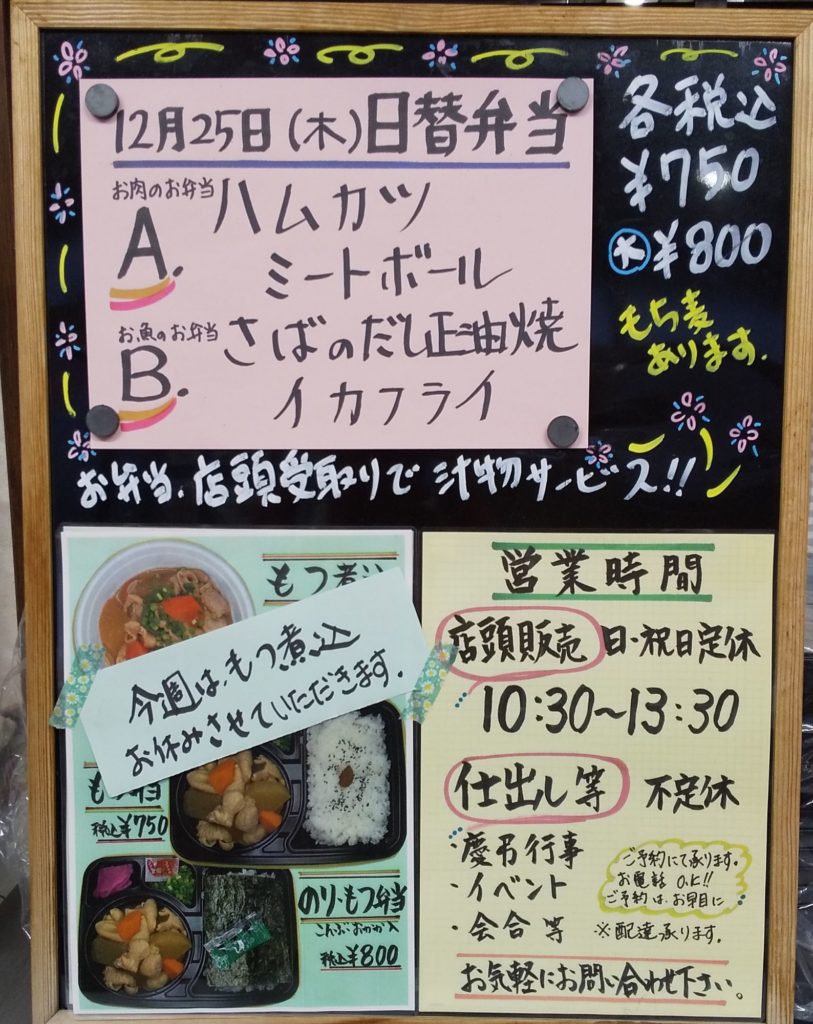 12月25日(木)日替弁当
お肉のお弁当
A. ハムカツ
ミートボール
お魚のお弁当
B. さばのだし正油焼
イカフライ
各税込
¥750
大 ¥800
もち麦
あります.
お弁当、店頭受取りで汁物サービス!!
もつ煮込
今週は、もつ煮込
お休みさせていただきます.
税込¥750
のり・もつ弁当
こんぶ・おかか入
税込¥800
営業時間
店頭販売 日・祝日定休
10:30~13:30
仕出し等 不定休
・慶弔行事
・イベント
・会合等
ご予約にて承ります.
お電話 O.K!!
ご予約は、お早目に
※配達承ります.
お気軽にお問い合わせ下さい。